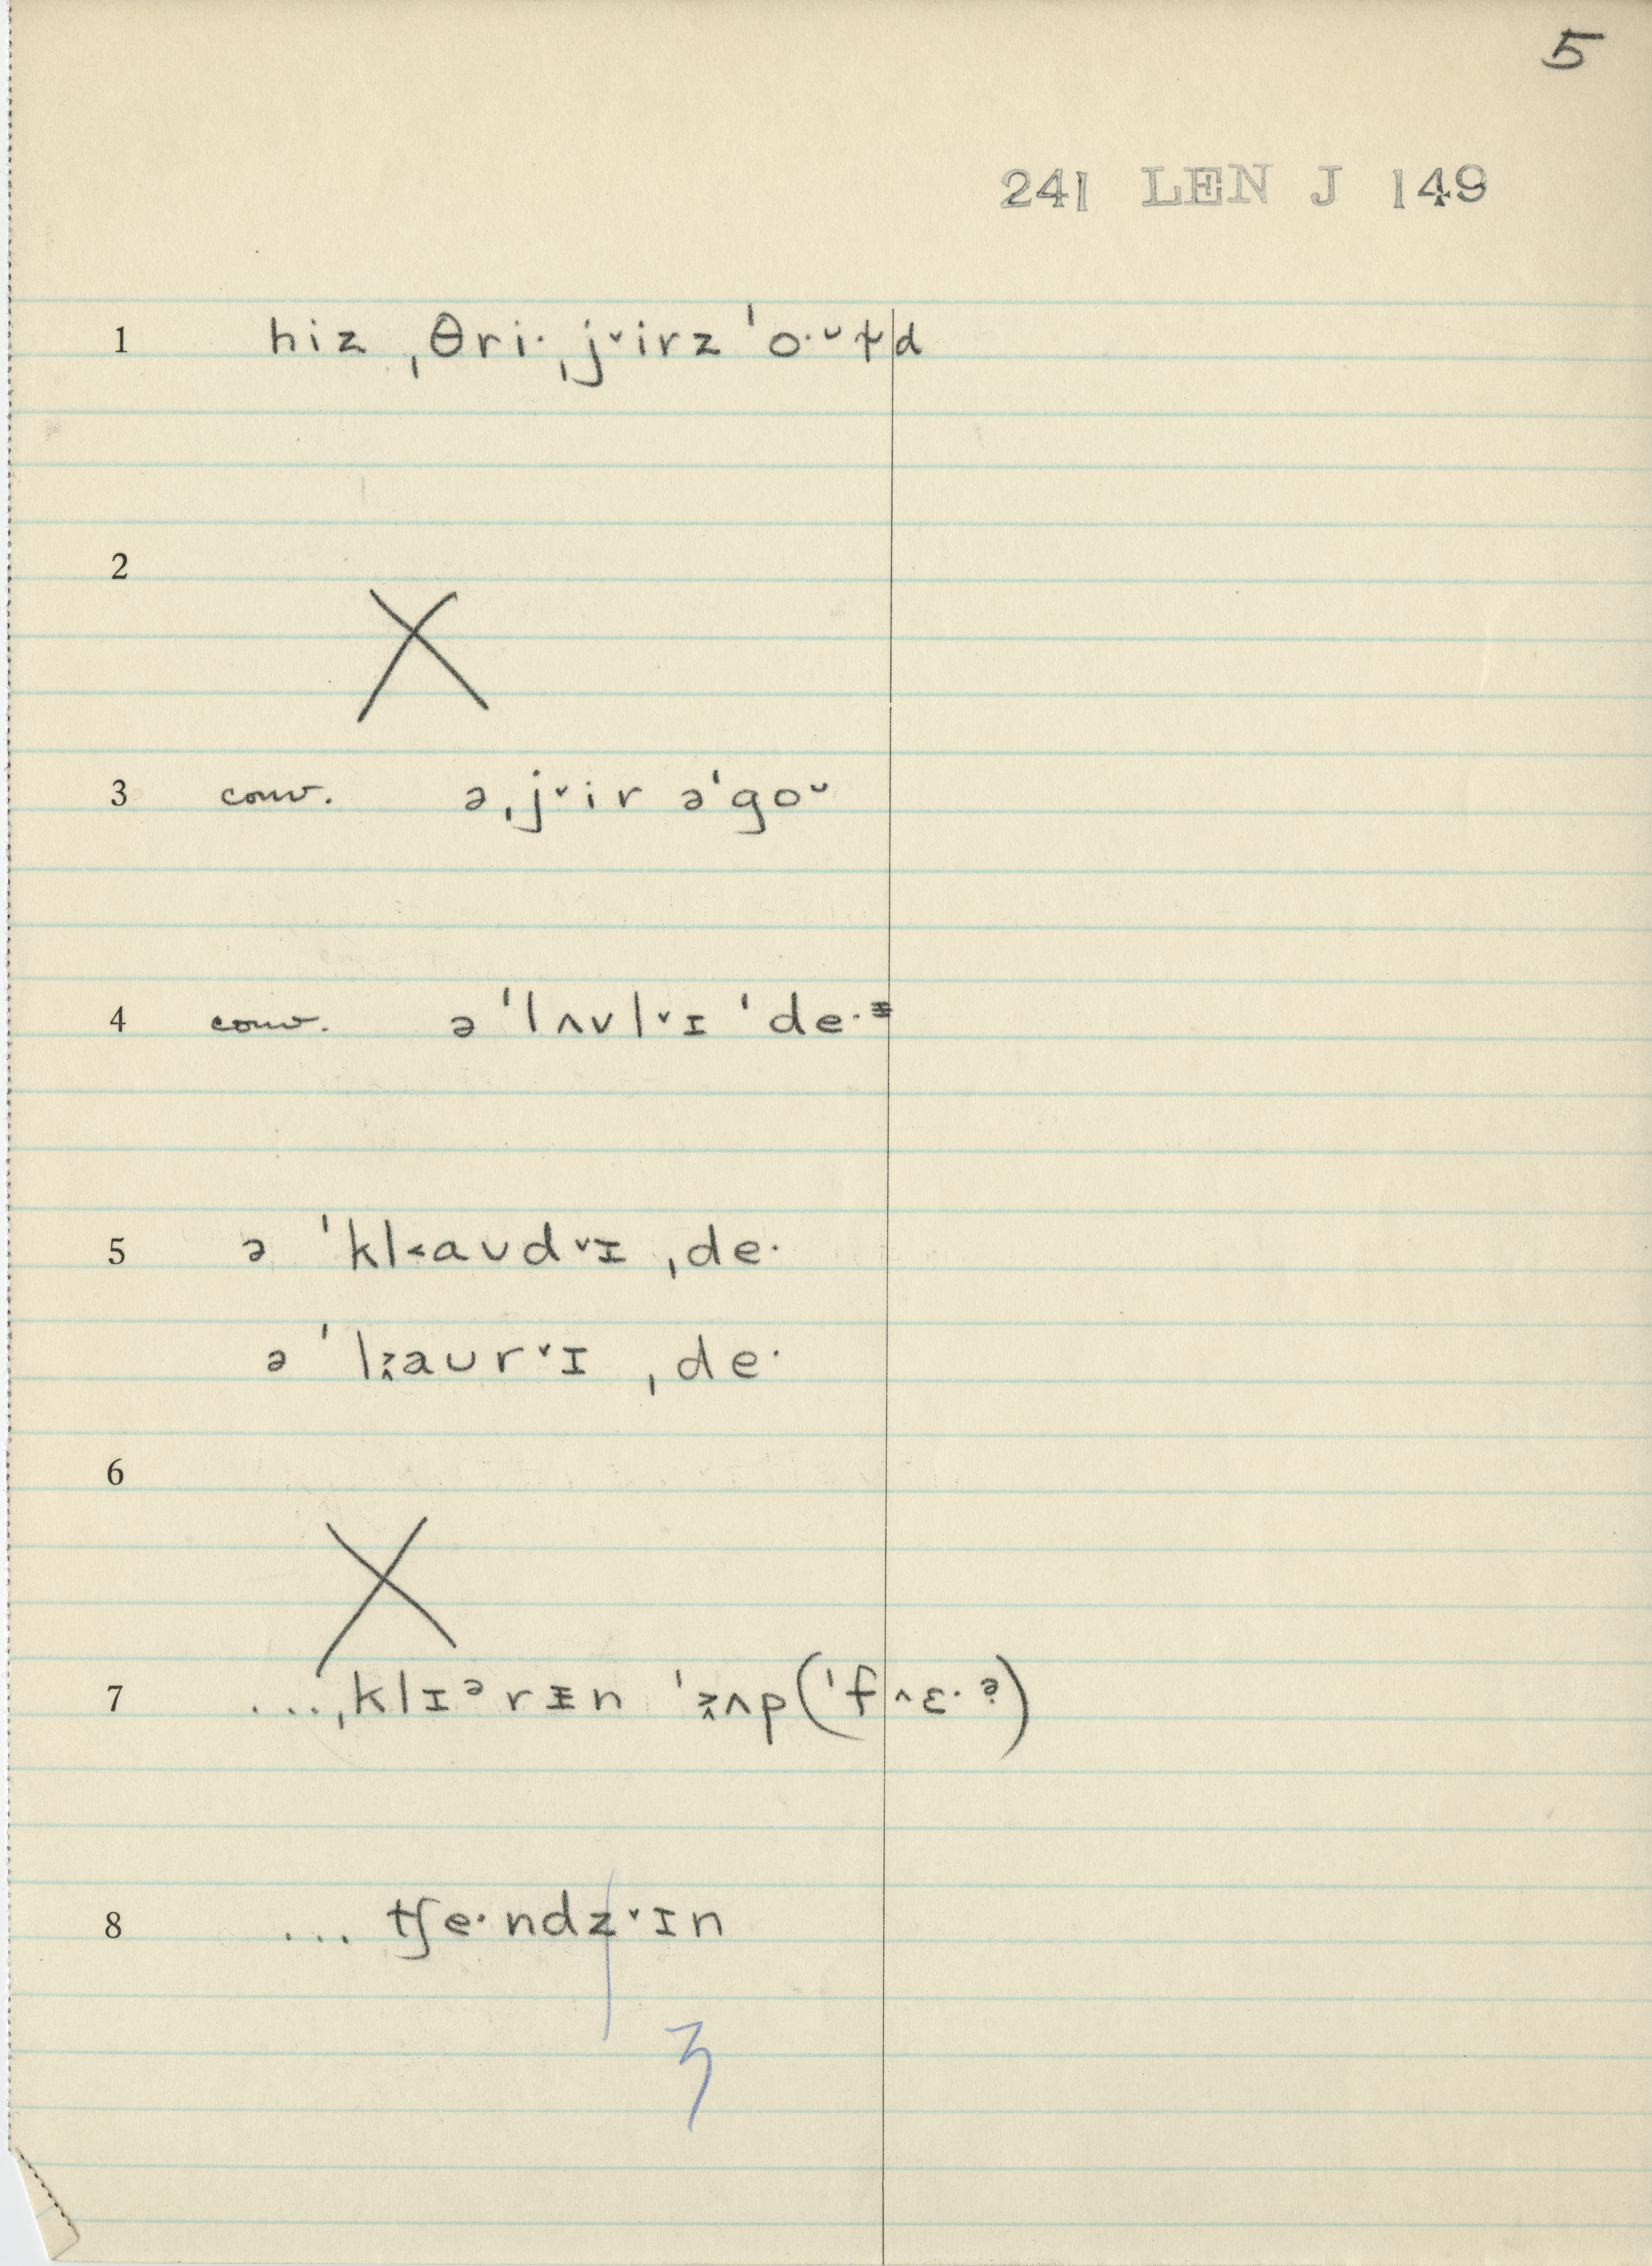 5
241 LEN J 149
1 hiz ˌθri· ˌj˅irz ˈo·ᵕɫd
2 X
3 conv. ə ˌj˅ir əˈgoᵕ
4 conv. ə ˈlʌvl˅ɪ ˈde·ᵻ
5 ə ˈkl˂aʊd˅ɪ ˌde·
ə ˈl˲aʊr˅ɪ ˌde·
6 X
7 ... ˌklɪᵊrᵻn ˈ˲ʌp (ˈf˄ɛ·ˀ)
8 ... tʃe·ndz˅ɪn
ʒ